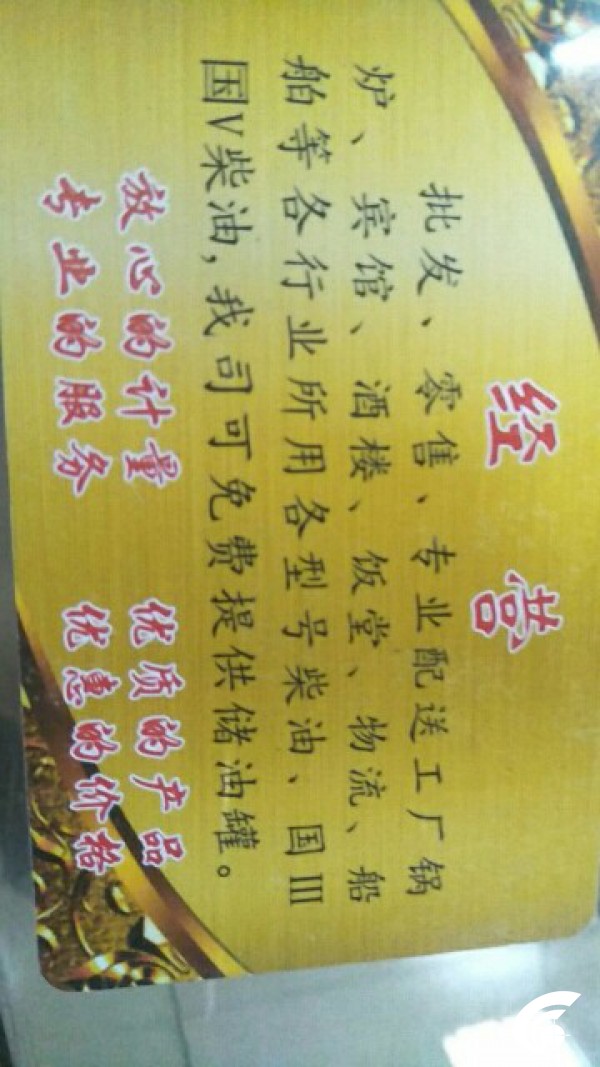 经营
批发、零售、专业配送工厂锅
炉、宾馆、酒楼、饭堂、物流、船
舶等各行业所用各型号柴油、国III
国V柴油,我司可免费提供储油罐。
放心的计量 优质的产品
专业的服务 优惠的价格